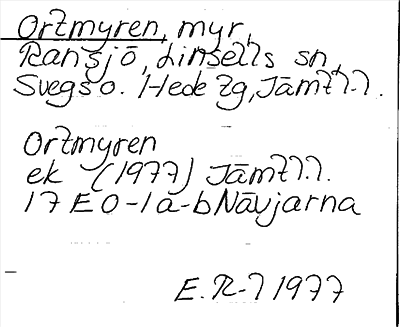 Ortmyren, myr,
Ransjö, Linsells sn,
Svegs o. Hede tg, Jämtl.l.
Ortmyren
ek (1977) Jämtl.l.
17 E 0-1 a-b Nävjarna
E.R-l 1977